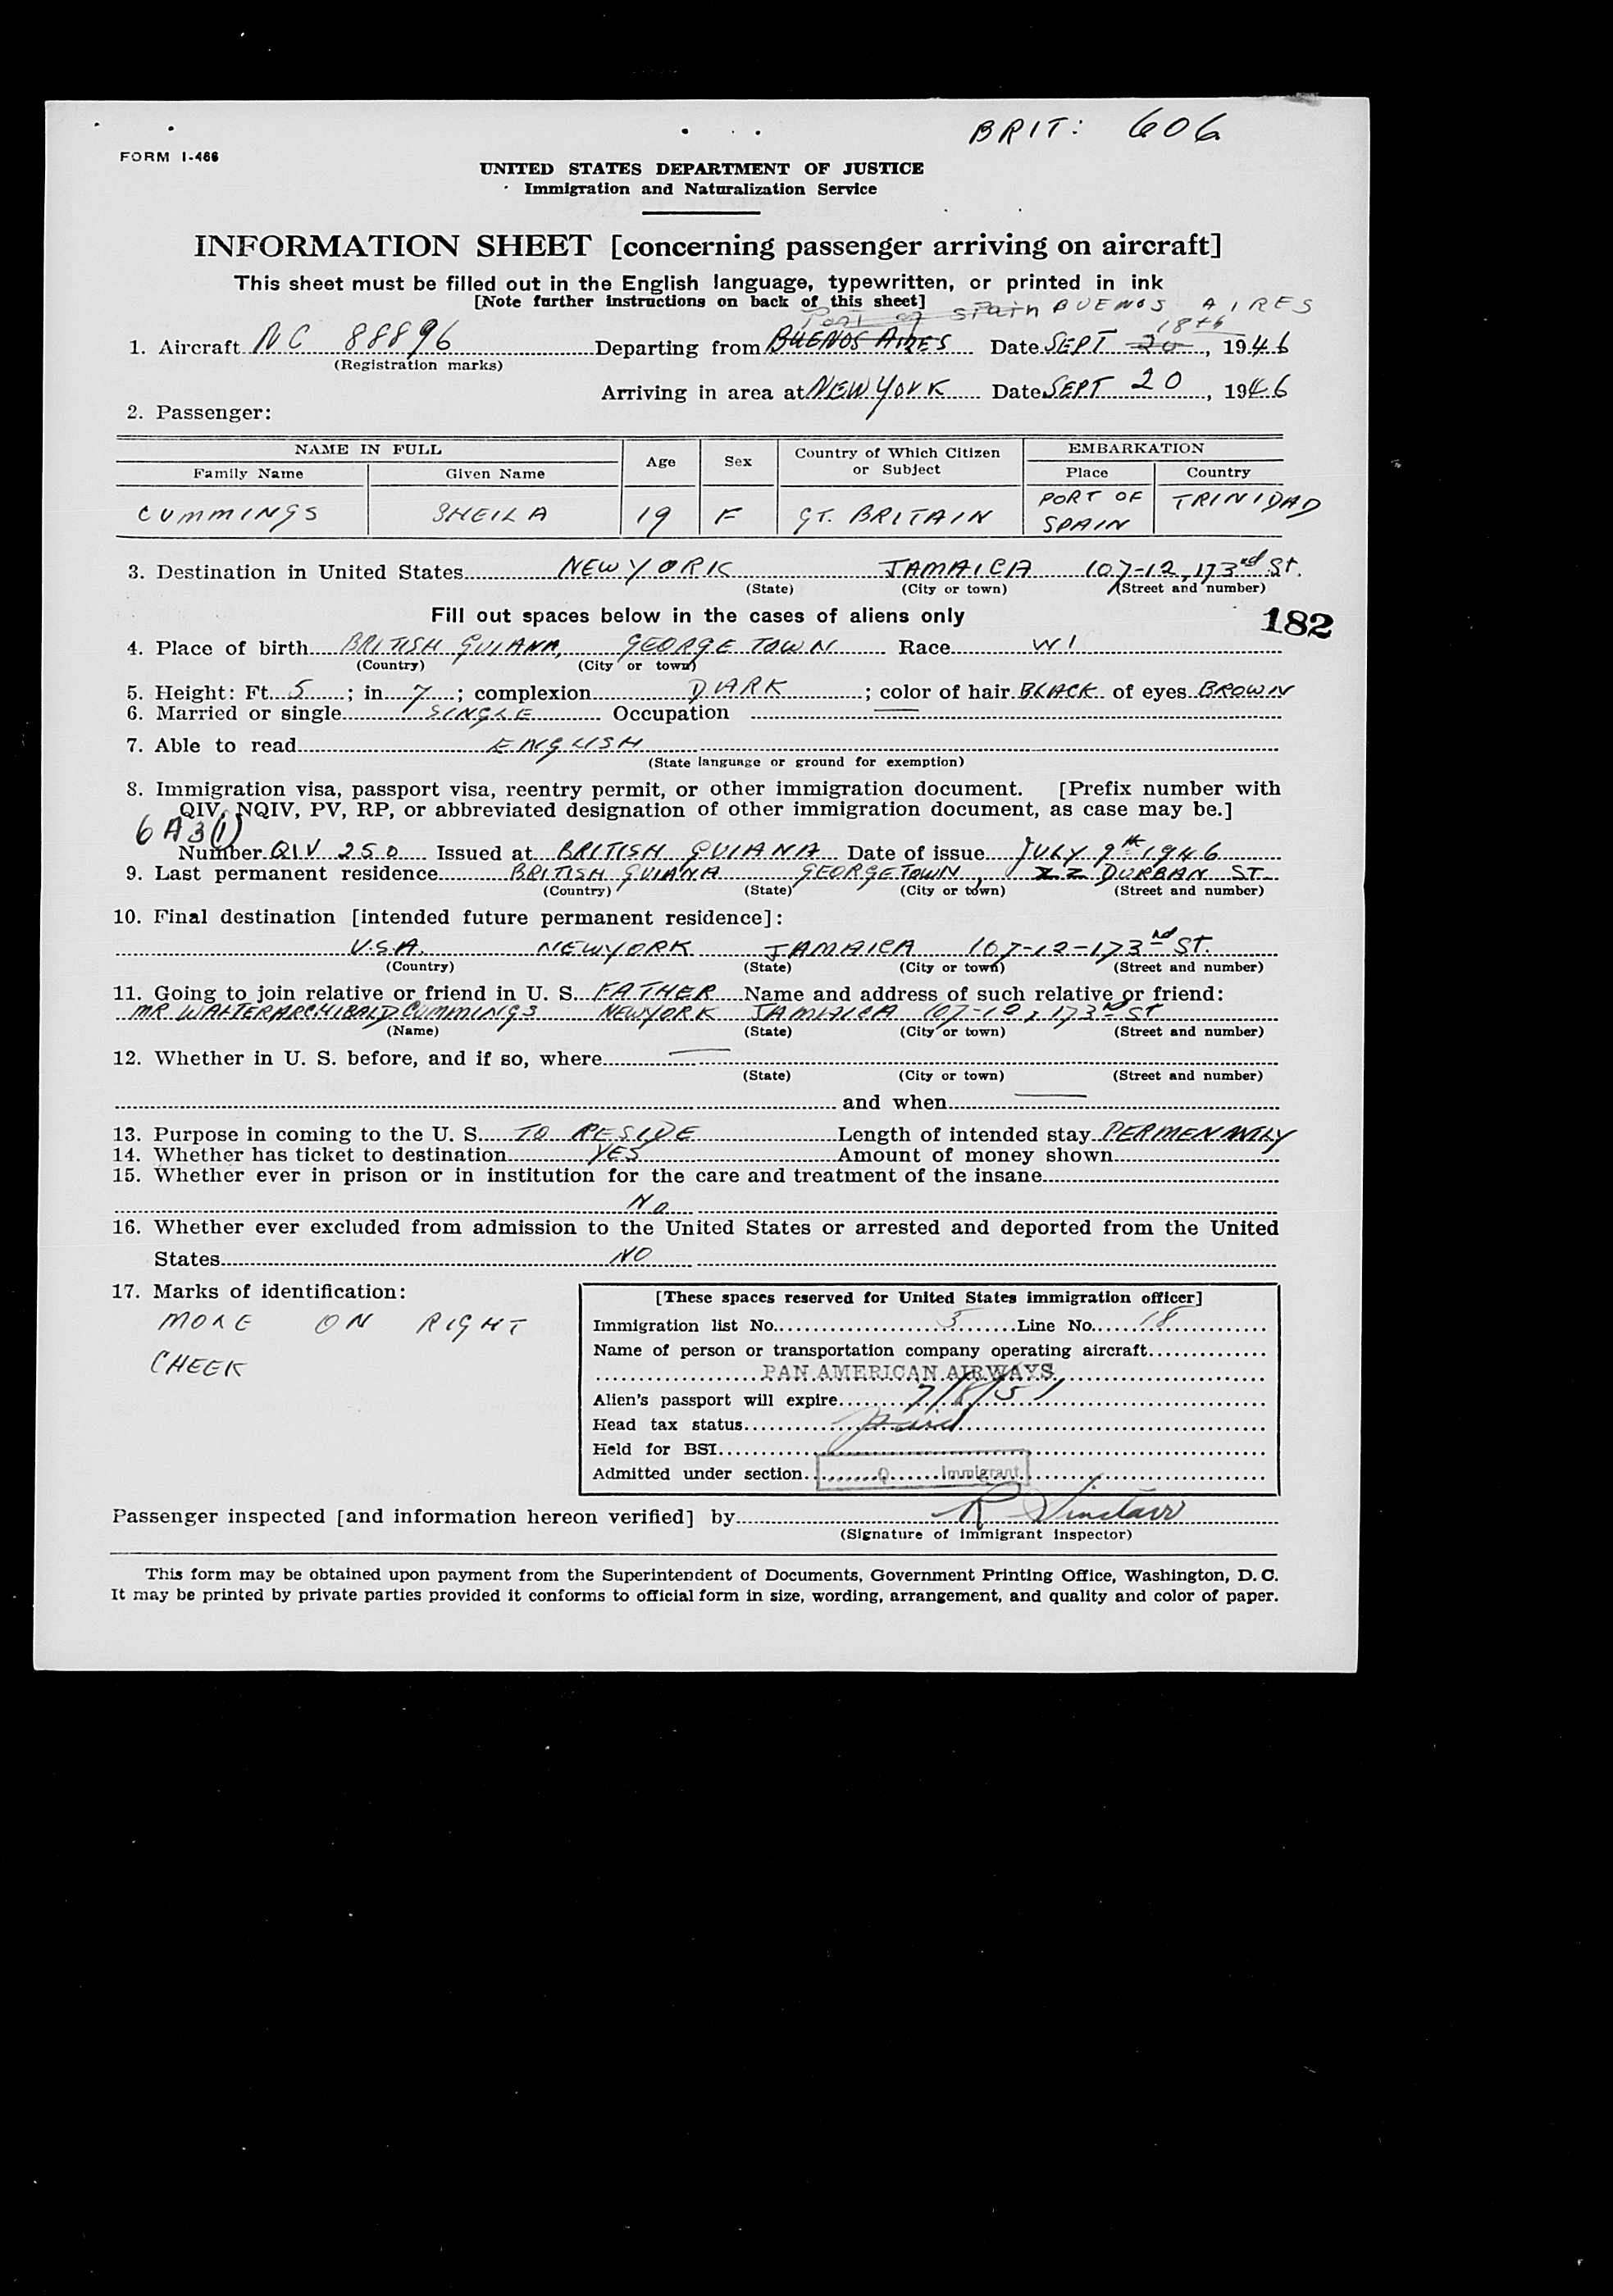 BRIT: 606
FORM I-466
UNITED STATES DEPARTMENT OF JUSTICE
Immigration and Naturalization Service
INFORMATION SHEET [concerning passenger arriving on aircraft]
This sheet must be filled out in the English language, typewritten, or printed in ink
[Note further instructions on back of this sheet]
Port of Spain BUENOS AIRES
1. Aircraft NC 88896 Departing from BUENOS AIRES Date SEPT 20 18th, 1946
(Registration marks)
Arriving in area at NEW YORK Date SEPT 20, 1946
2. Passenger:
NAME IN FULL Age Sex Country of Which Citizen or Subject EMBARKATION
Family Name Given Name Place Country
CUMMINGS SHEILA 19 F GT. BRITAIN PORT OF SPAIN TRINIDAD
3. Destination in United States NEW YORK JAMAICA 107-12, 173rd St.
(State) (City or town) (Street and number)
Fill out spaces below in the cases of aliens only
182
4. Place of birth BRITISH GUIANA, GEORGE TOWN Race WI
(Country) (City or town)
5. Height: Ft. 5; in 7; complexion DARK; color of hair BLACK of eyes BROWN
6. Married or single SINGLE Occupation —
7. Able to read ENGLISH
(State language or ground for exemption)
8. Immigration visa, passport visa, reentry permit, or other immigration document. [Prefix number with
QIV, NQIV, PV, RP, or abbreviated designation of other immigration document, as case may be.]
6A3(1)
Number QIV 250 Issued at BRITISH GUIANA Date of issue JULY 9th 1946
9. Last permanent residence BRITISH GUIANA GEORGETOWN, 22 DURBAN ST
(Country) (State) (City or town) (Street and number)
10. Final destination [intended future permanent residence]:
U.S.A. NEWYORK JAMAICA 107-12-173rd ST.
(Country) (State) (City or town) (Street and number)
11. Going to join relative or friend in U. S. FATHER Name and address of such relative or friend:
MR WALTER ARCHIBALD CUMMINGS NEWYORK JAMAICA 107-12, 173rd ST
(Name) (State) (City or town) (Street and number)
12. Whether in U. S. before, and if so, where —
(State) (City or town) (Street and number)
and when —
13. Purpose in coming to the U. S. TO RESIDE Length of intended stay PERMENANTLY
14. Whether has ticket to destination YES Amount of money shown
15. Whether ever in prison or in institution for the care and treatment of the insane
No
16. Whether ever excluded from admission to the United States or arrested and deported from the United
States NO
17. Marks of identification:
MOLE ON RIGHT
CHEEK
[These spaces reserved for United States immigration officer]
Immigration list No. 3 Line No. 18
Name of person or transportation company operating aircraft
PAN AMERICAN AIRWAYS
Alien's passport will expire 7/8/51
Head tax status paid
Held for BSI
Admitted under section Q Immigrant
Passenger inspected [and information hereon verified] by R Sinclair
(Signature of immigrant inspector)
This form may be obtained upon payment from the Superintendent of Documents, Government Printing Office, Washington, D. C.
It may be printed by private parties provided it conforms to official form in size, wording, arrangement, and quality and color of paper.